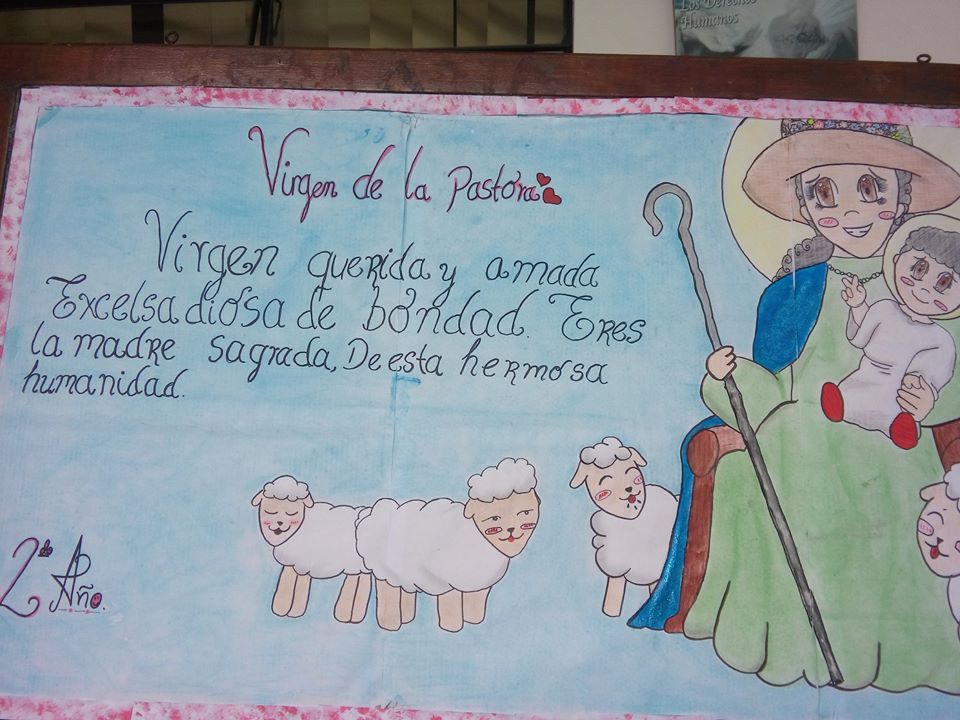 Los Derechos
Humanos
Virgen de la Pastora
Virgen querida y amada
Excelsa diosa de bondad. Eres
la madre sagrada, De esta hermosa
humanidad.
2do Año.